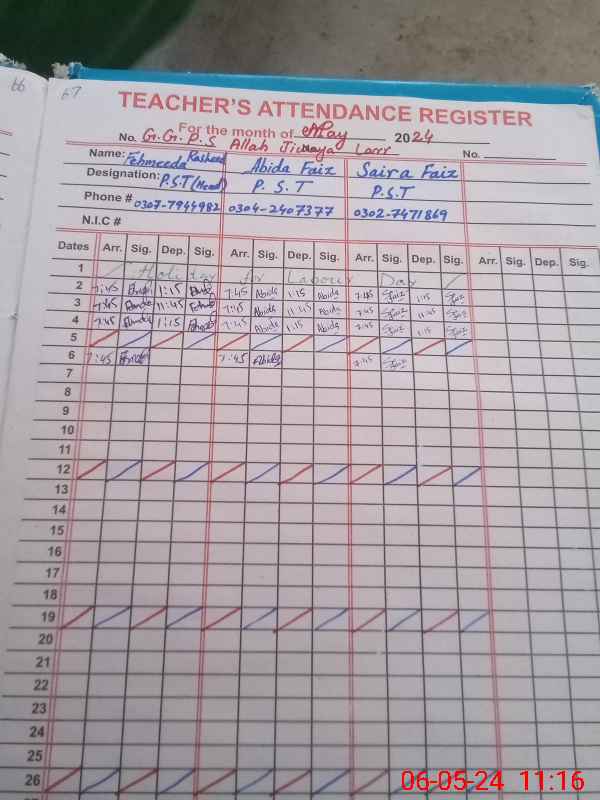 66
67
TEACHER'S ATTENDANCE REGISTER
For the month of May 2024
No. G.G.P.S Allah Jiwaya Larr No.
Name: Fehmeeda Rasheed Abida Faiz Saira Faiz
Designation: P.S.T (Head) P.S.T P.S.T
Phone # 0307-7944982 0304-2407377 0302-7471869
N.I.C #
Dates Arr. Sig. Dep. Sig. Arr. Sig. Dep. Sig. Arr. Sig. Dep. Sig. Arr. Sig. Dep. Sig.
1 Holiday for Labour Day
2 7:45 1:15 7:45 Abida 1:15 Abida 7:45 Sfaiz 1:15 Sfaiz
3 7:45 11:45 7:45 Abida 11:45 Abida 7:45 Sfaiz 11:45 Sfaiz
4 7:45 1:15 7:45 Abida 1:15 Abida 7:45 Sfaiz 1:15 Sfaiz
5
6 7:45 7:45 Abida 7:45 Sfaiz
7
8
9
10
11
12
13
14
15
16
17
18
19
20
21
22
23
24
25
26
06-05-24 11:16